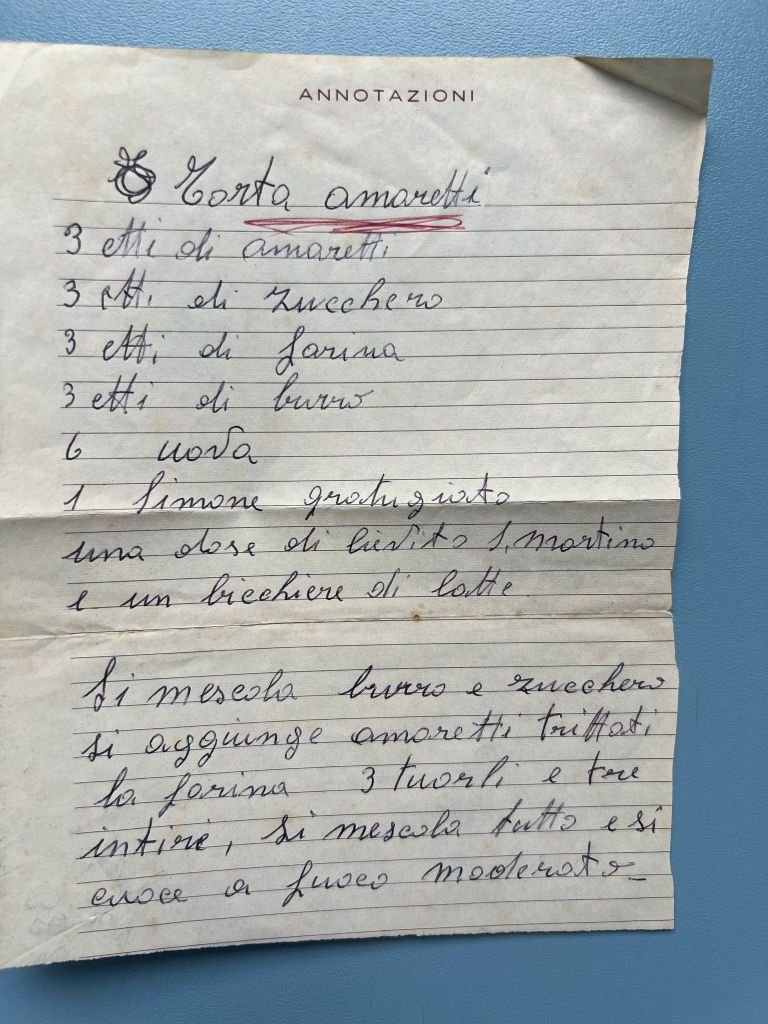 ANNOTAZIONI
Torta amaretti
3 etti di amaretti
3 etti di zucchero
3 etti di farina
3 etti di burro
6 uova
1 limone gratugiato
una dose di lievito S. Martino
e un bicchiere di latte.
Si mescola burro e zucchero
si aggiunge amaretti trittati
la farina 3 tuorli e tre
intiri, si mescola tutto e si
cuoce a fuoco moderato_